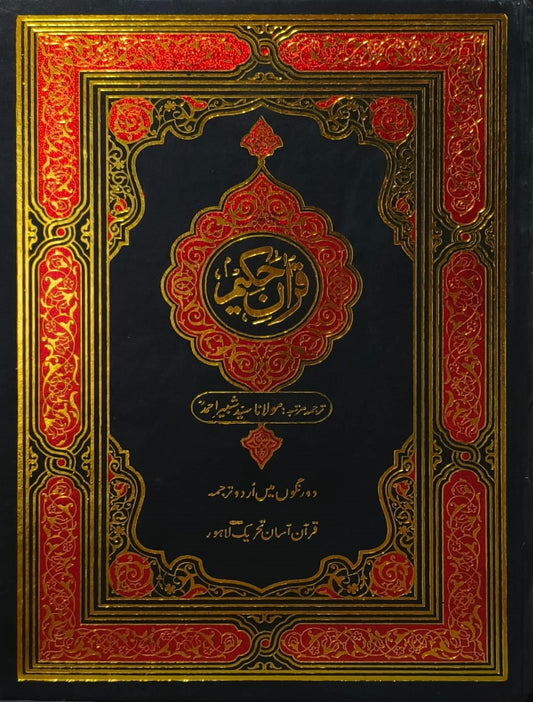 قرآن حکیم
ترجمہ مرتبہ: مولانا سید شبیر احمدؒ
دو رنگوں میں اُردو ترجمہ
قرآن آسان تحریک لاہور